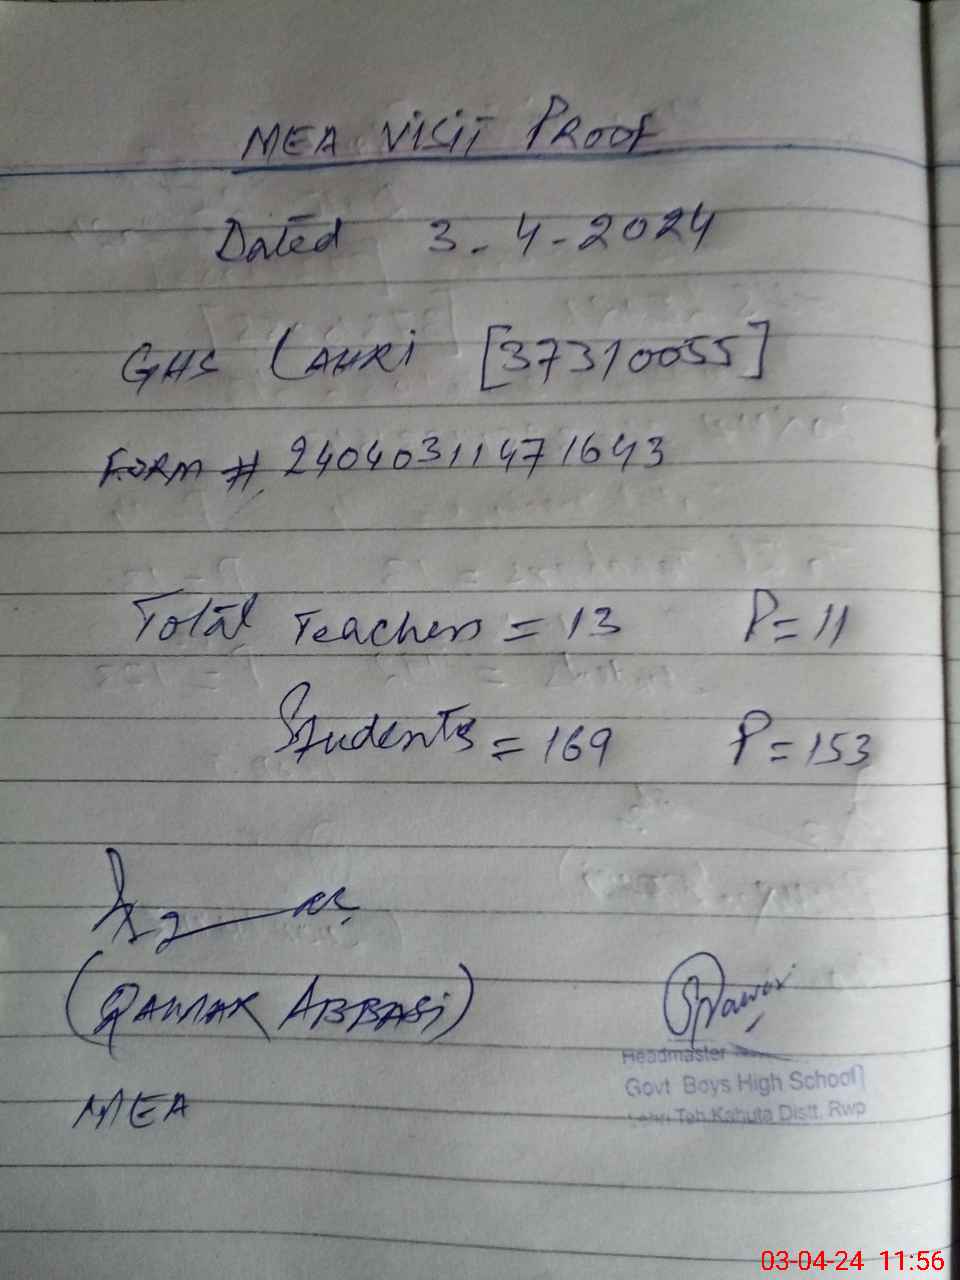 MEA VISIT PROOF
Dated 3-4-2024
GHS LAHRI [37310055]
FORM # 24040311471643
Total Teachers = 13 P = 11
Students = 169 P = 153
(QAMAR ABBASI)
MEA
Headmaster
Govt Boys High School
Teh Kahuta Distt. Rwp
03-04-24 11:56